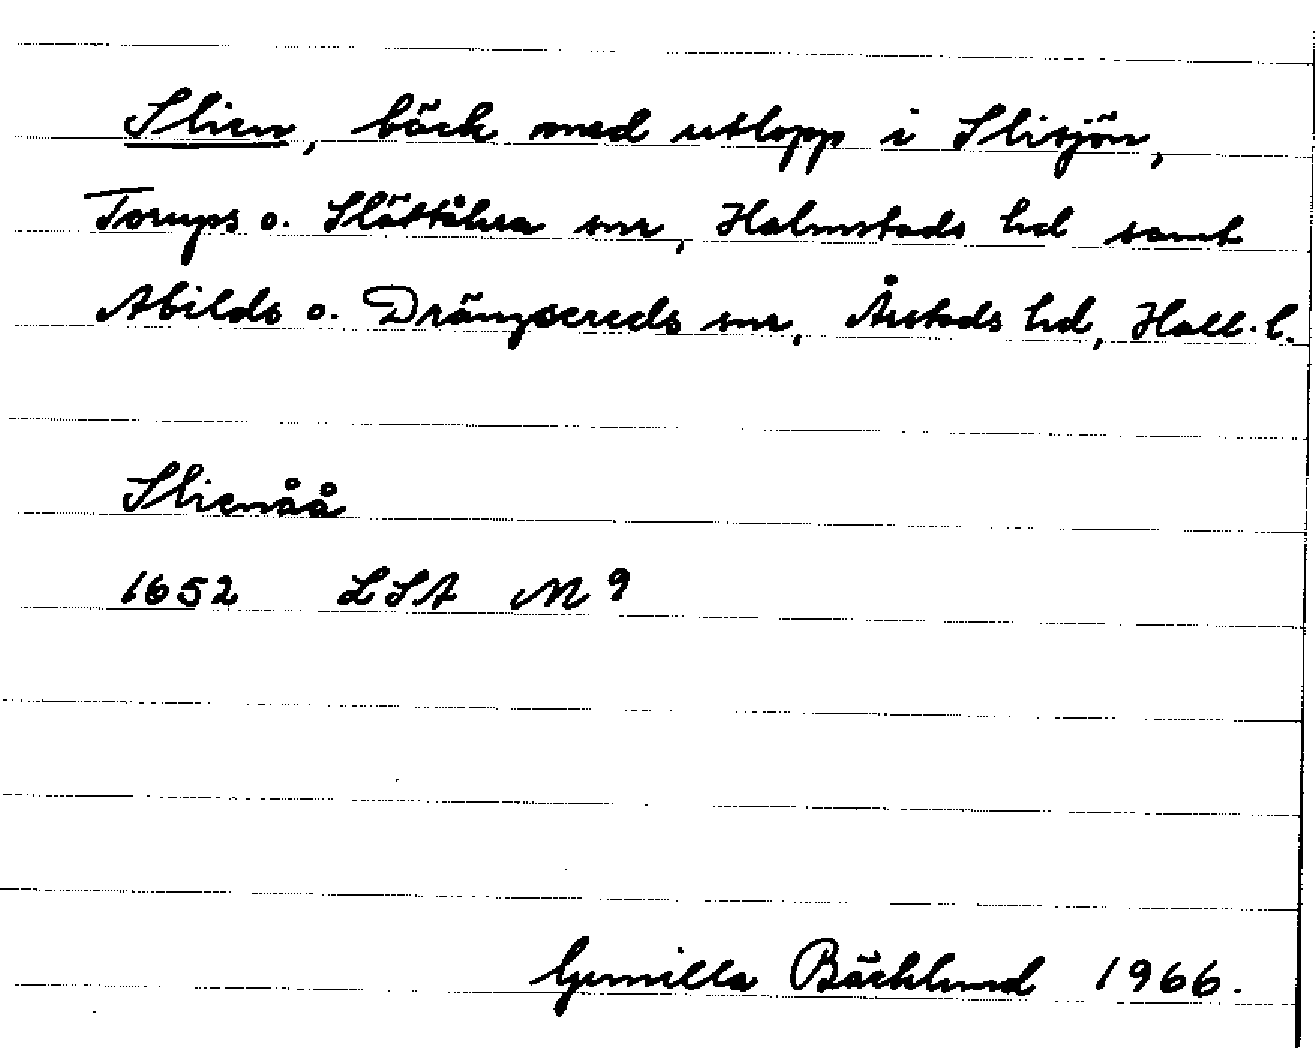 Slien, bäck med utlopp i Slisjön,
Torups o. Slättåkra snr, Halmstads hd samt
Abilds o. Drängsereds snr, Årstads hd, Hall. l.
Slienåå
1652 LSA M 9
Gunilla Bäcklund 1966.